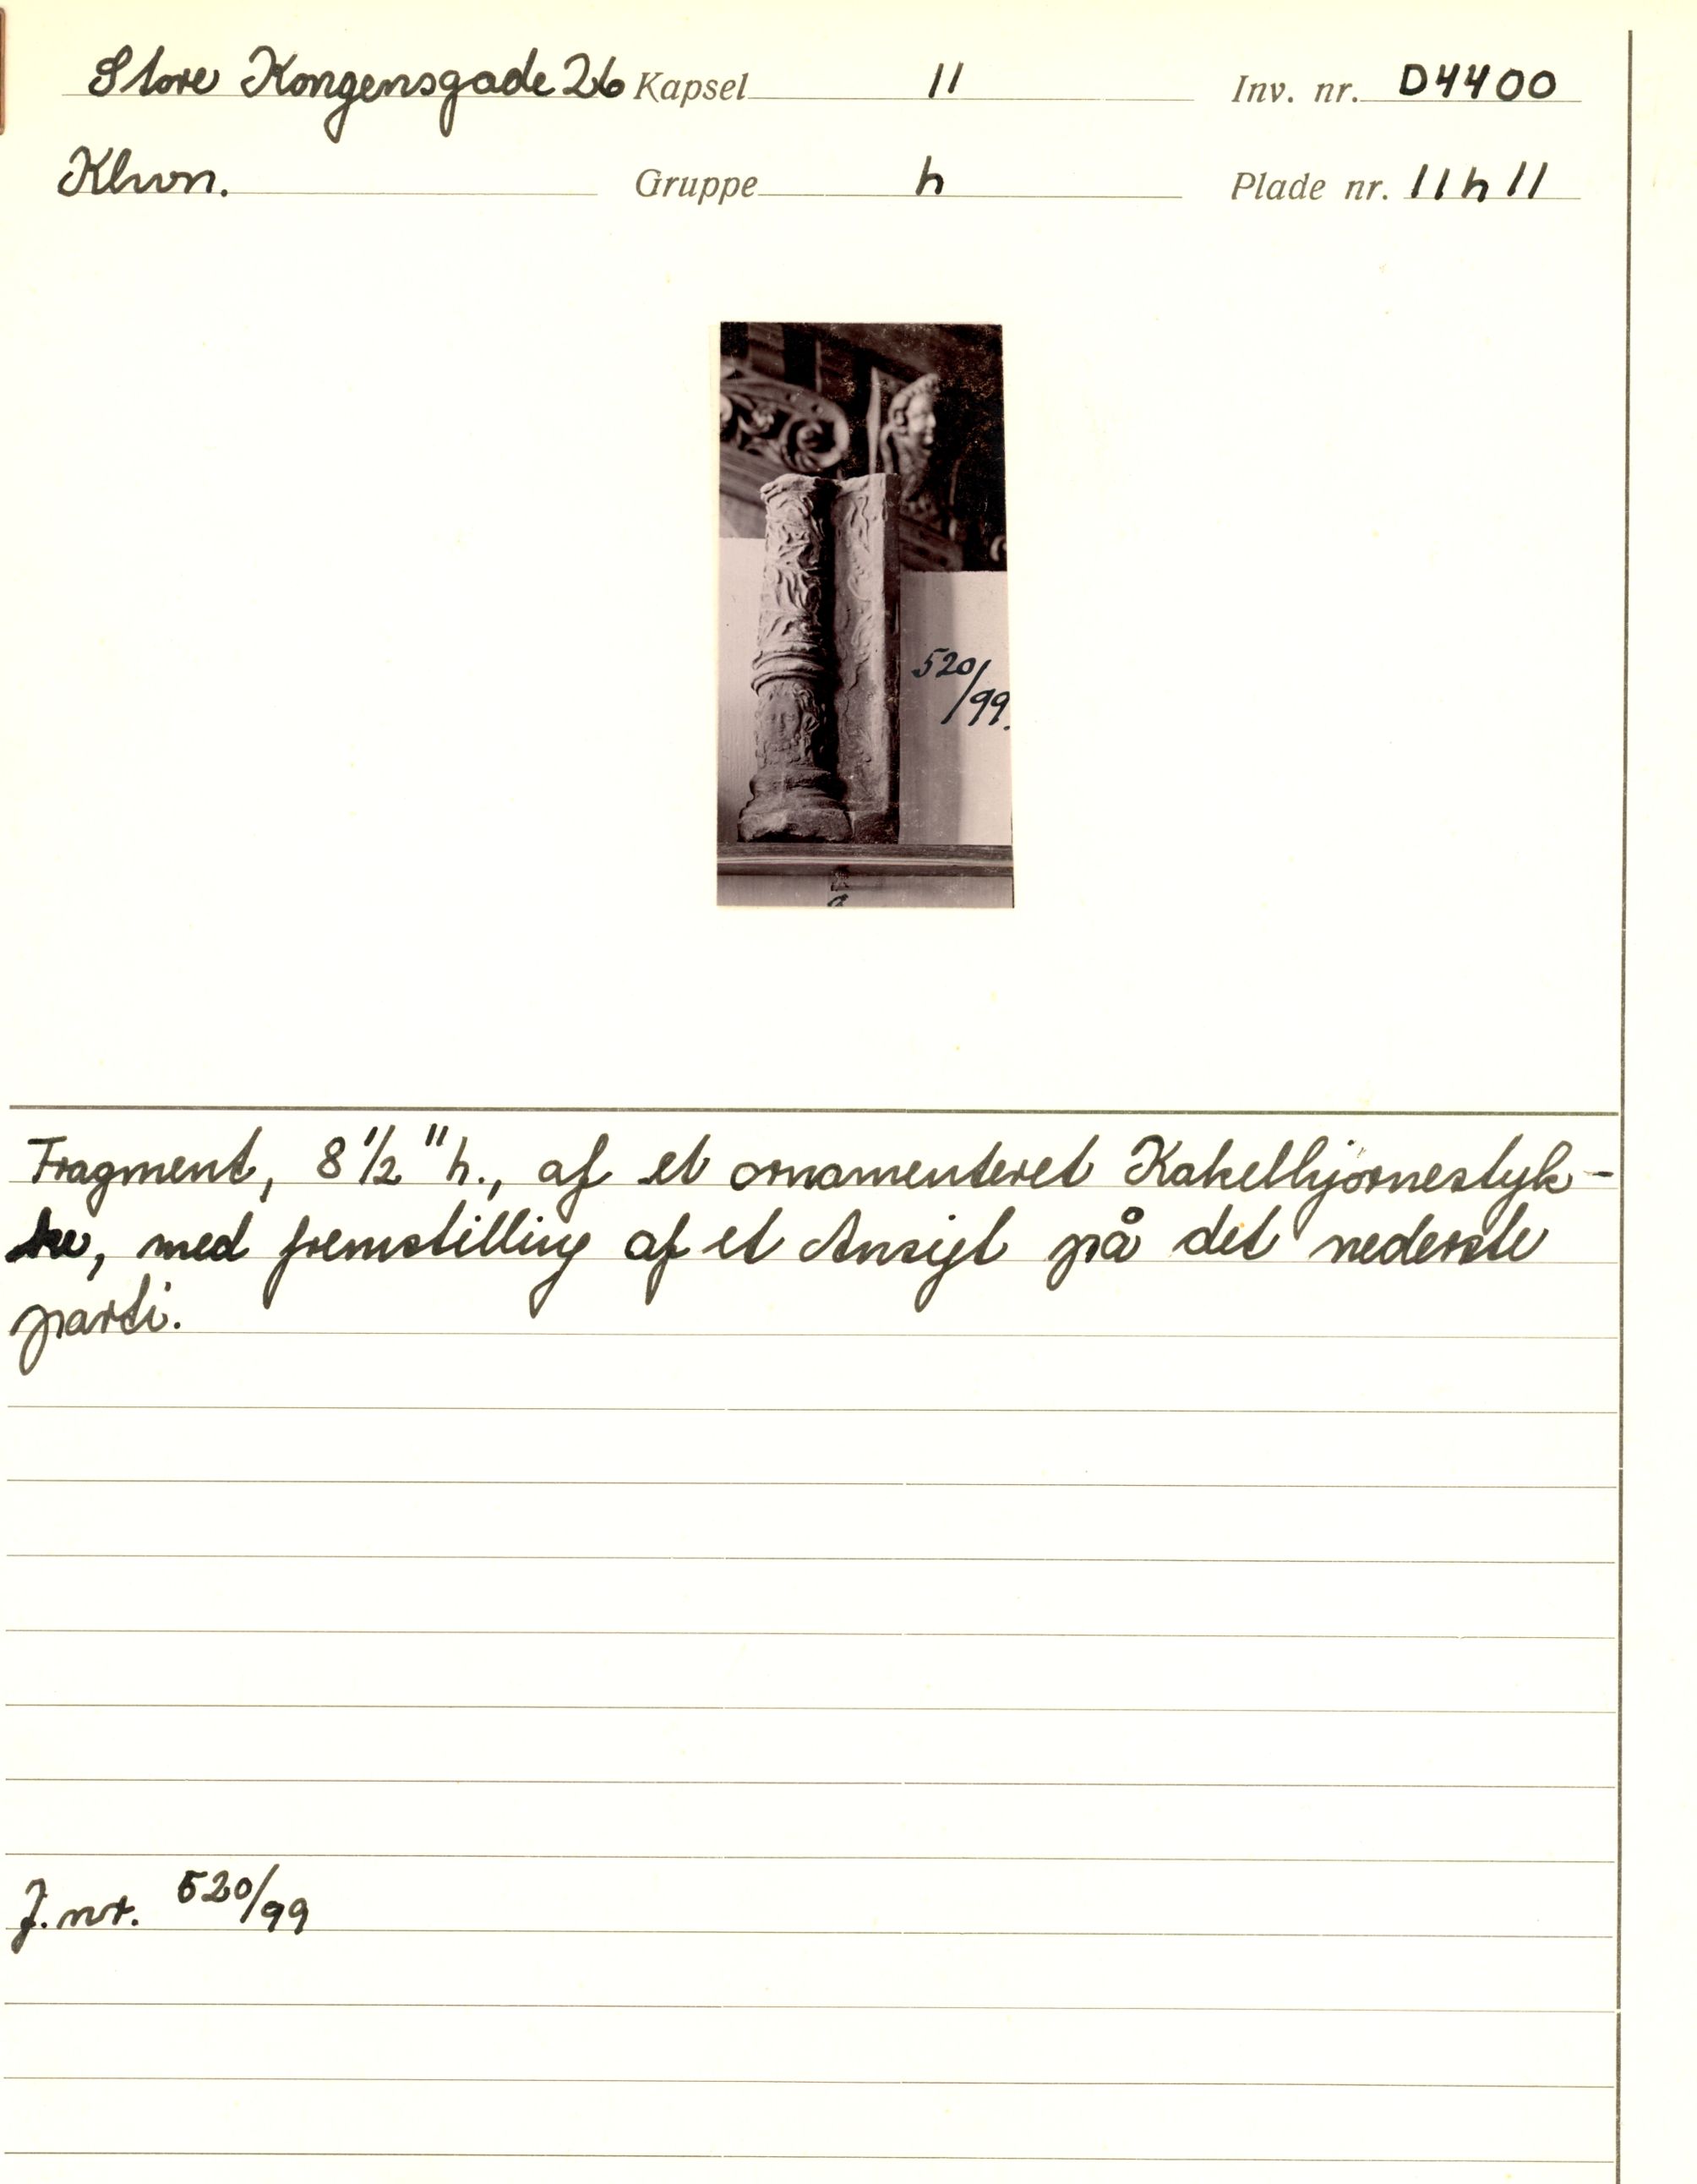 Store Kongensgade 26 Kapsel 11 Inv. nr. D4400
Kbvn. Gruppe h Plade nr. 11h11
520/99.
Fragment, 8 1/2 " h., af et ornamenteret Kakelhjørnestyk-
ke, med fremstilling af et Ansigt på det nederste
parti.
J. nr. 520/99